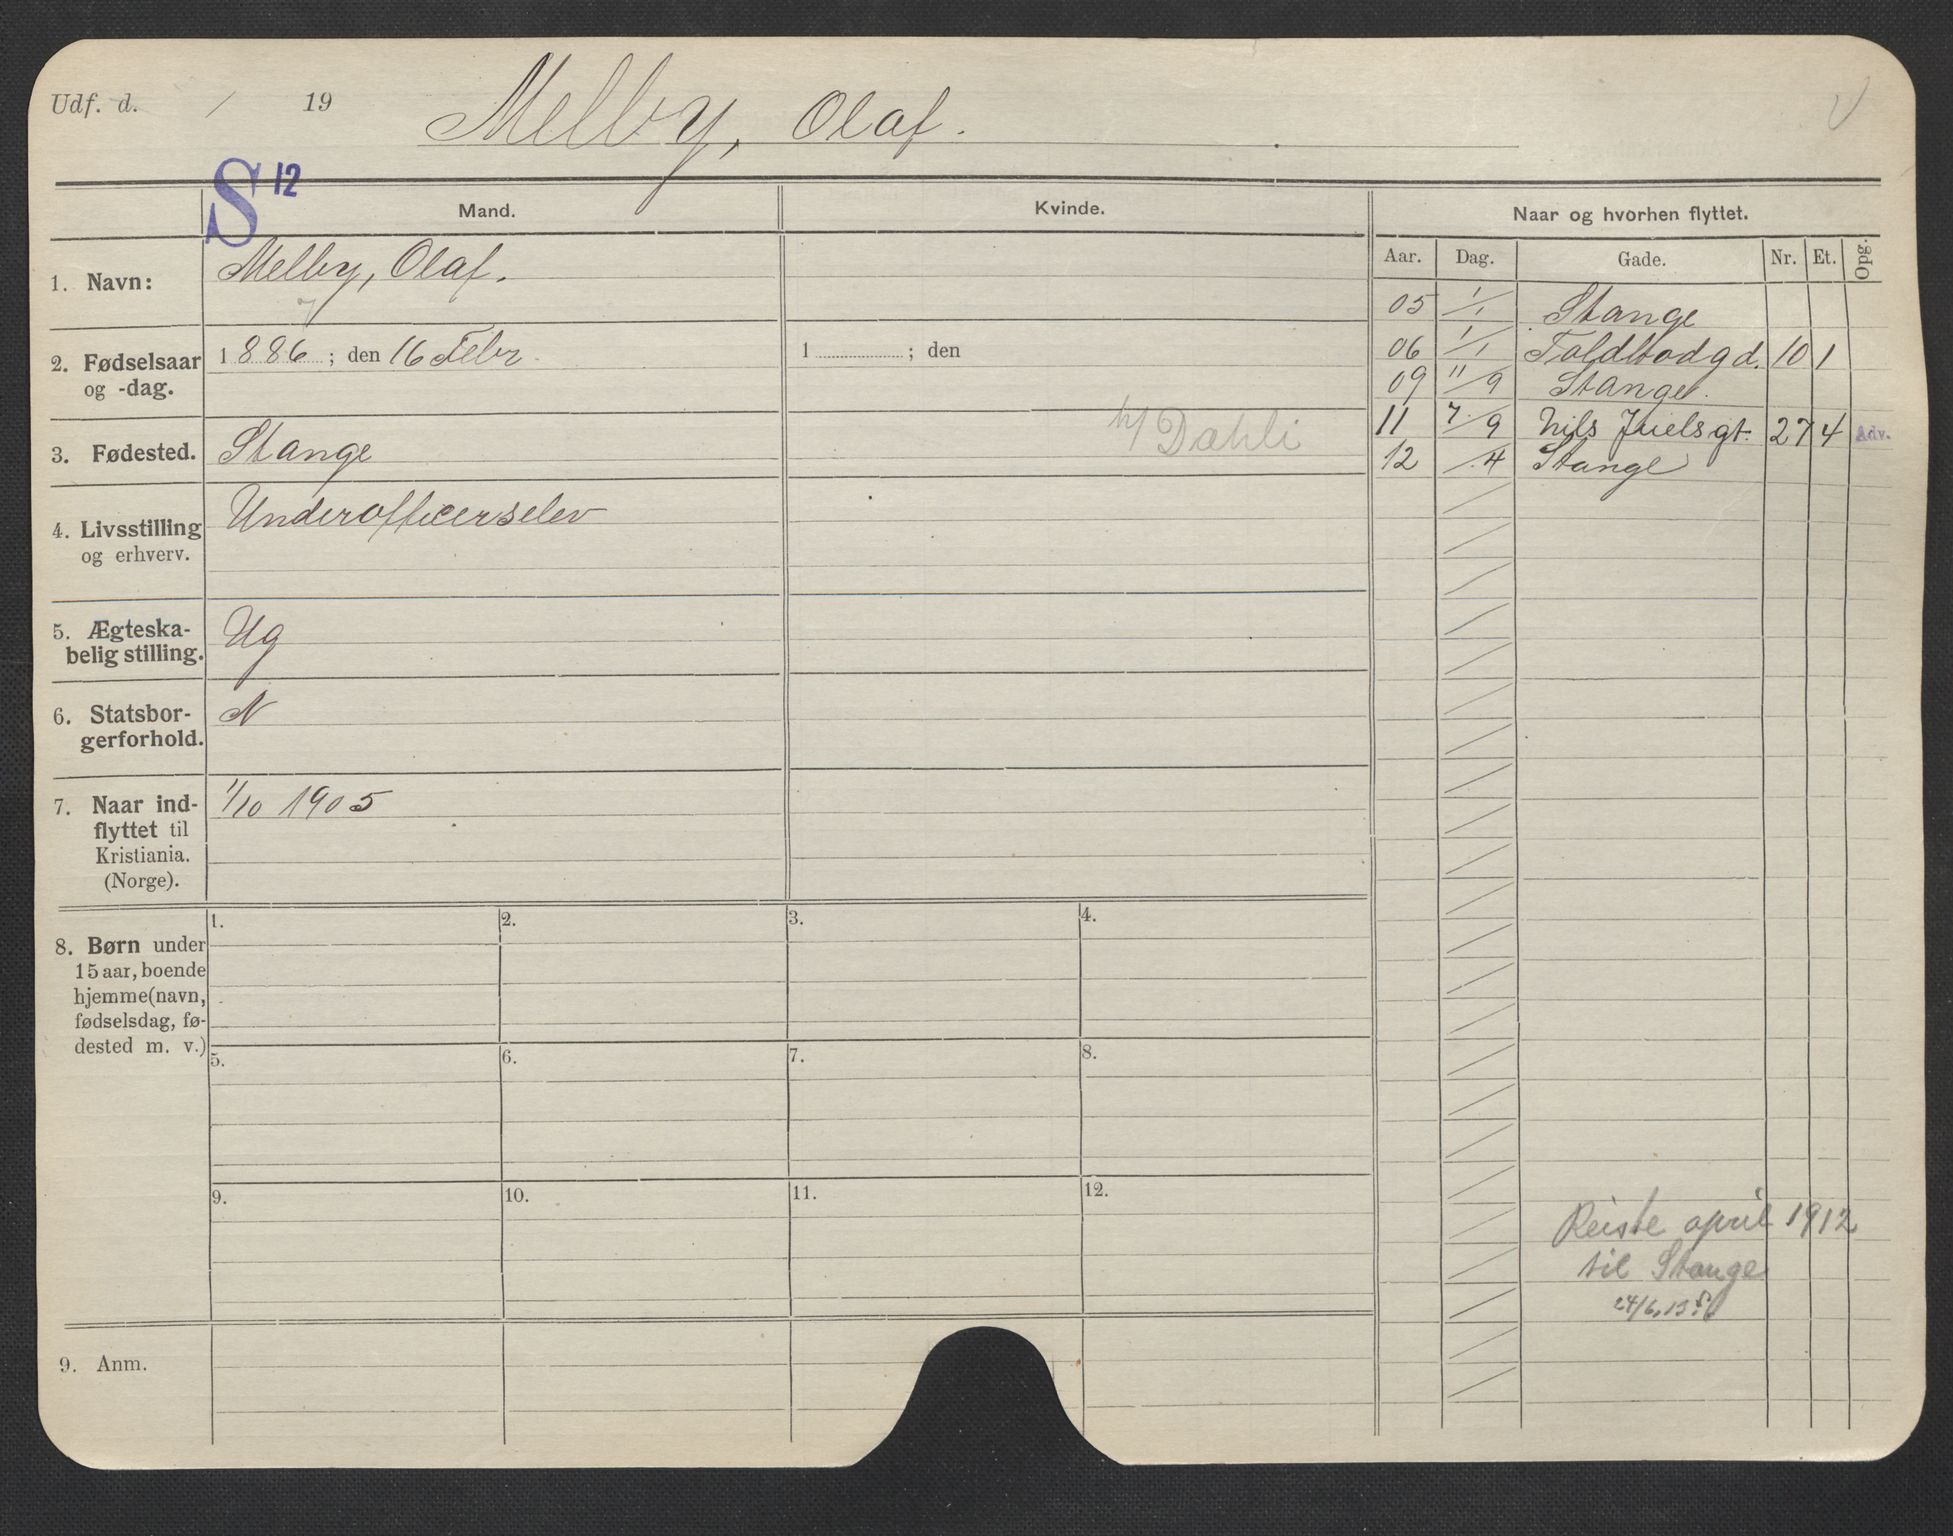 Udf. d. / 19 Melby, Olaf.
S 12
Mand. Kvinde. Naar og hvorhen flyttet.
Aar. Dag. Gade. Nr. Et. Opg.
1. Navn: Melby, Olaf.
2. Fødselsaar og -dag. 1886; den 16 Febr. 1 ; den
3. Fødested. Stange h/ Dahli
4. Livsstilling og erhverv. Underofficerselev
5. Ægteska-
belig stilling. Ug
6. Statsbor-
gerforhold. N
7. Naar ind-
flyttet til
Kristiania.
(Norge). 1/10 1905
05 1/1 Stange
06 1/1 Toldbodgd. 10 1
09 11/9 Stange.
11 7/9 Nils Juelsgt. 27 4 Adv.
12 /4 Stange
8. Børn under
15 aar, boende
hjemme (navn,
fødselsdag, fø-
dested m. v.)
1. 2. 3. 4.
5. 6. 7. 8.
9. 10. 11. 12.
Reiste april 1912
til Stange
24/6, 13
9. Anm.